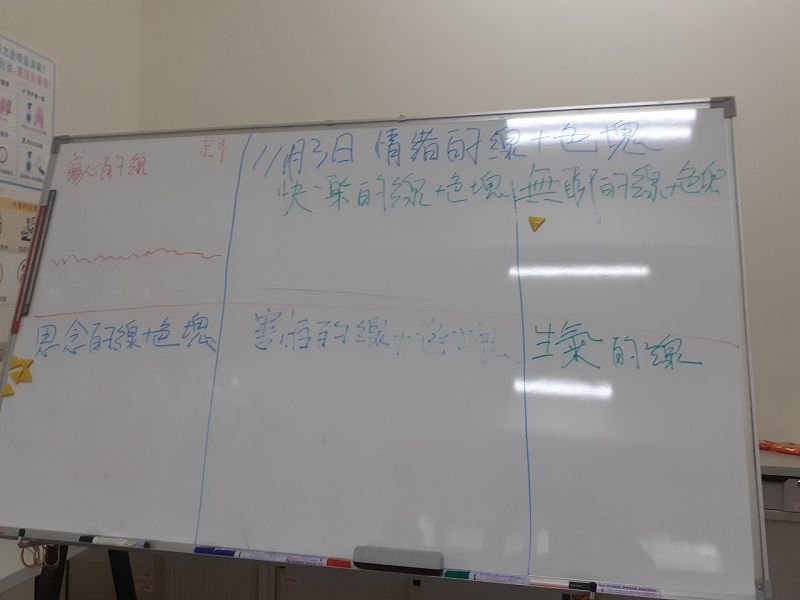 傷心的線
左手
11月3日 情緒的線+色塊
快樂的線+色塊
無聊的線+色塊
思念的線+色塊
害怕的線+色塊
生氣的線